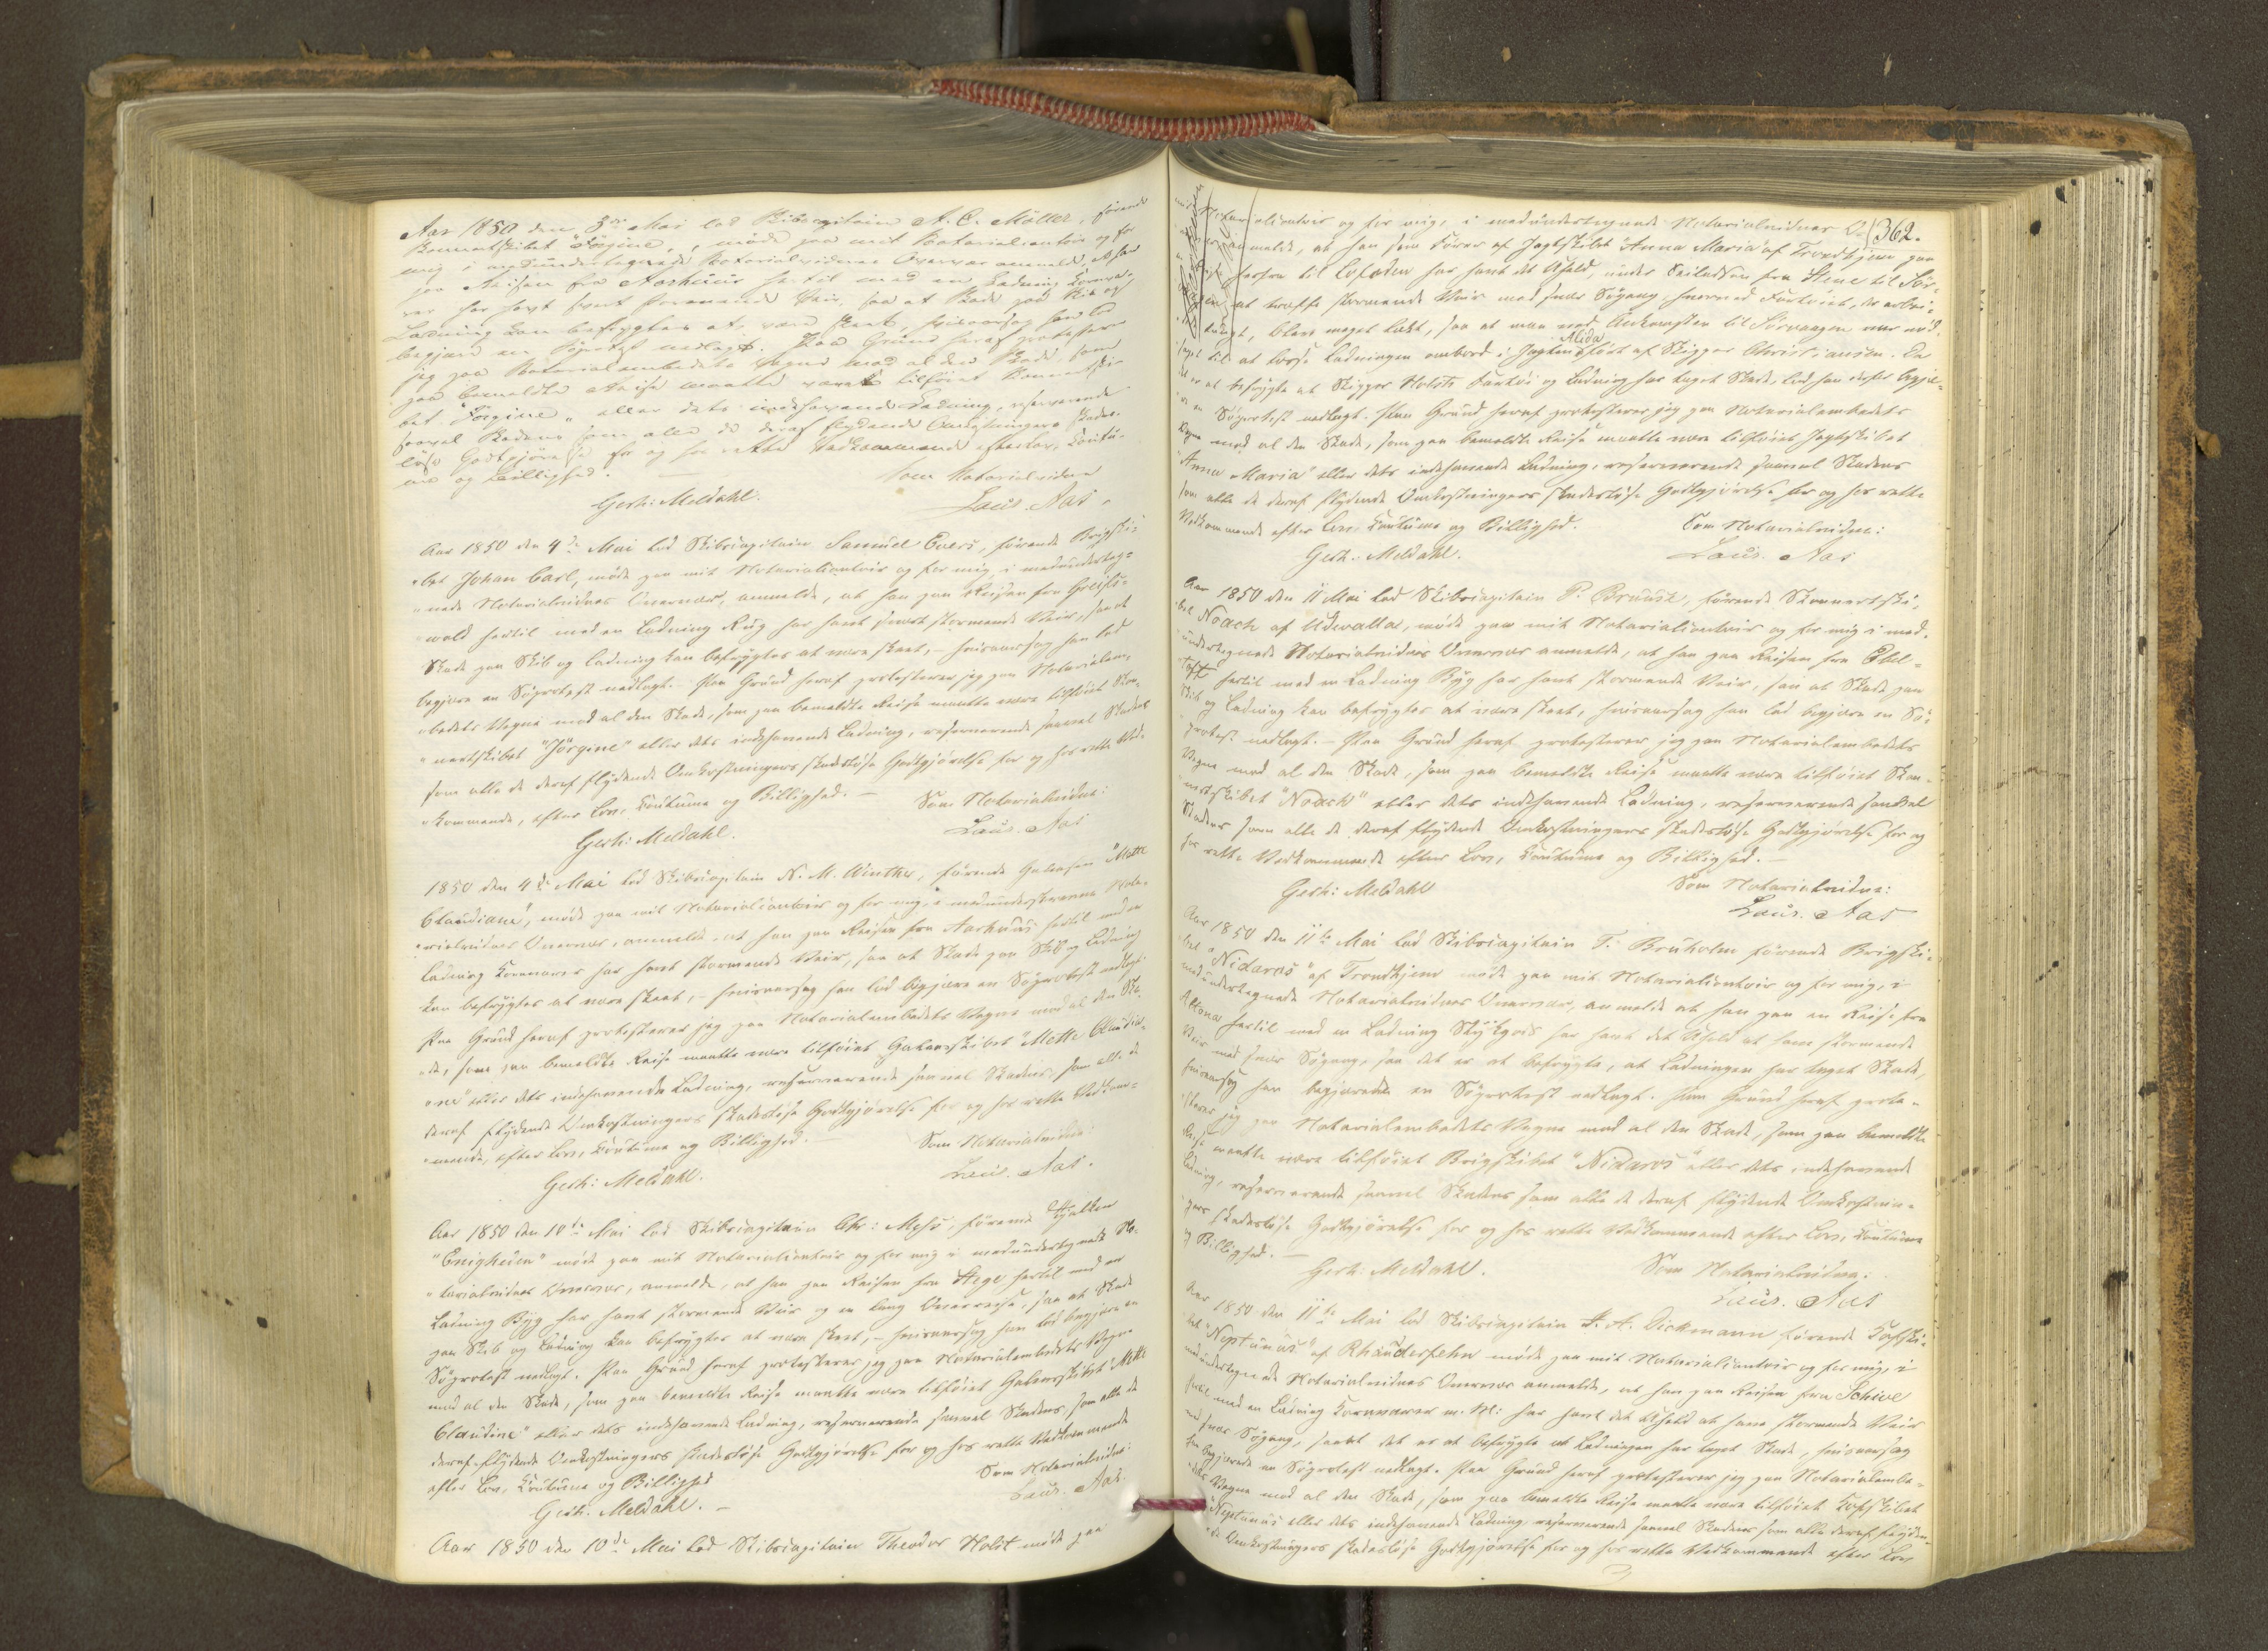 Aar 1850 den 3die Mai lod Skibscapitain A. C. Möller, förende
Skonnertskibet "Jörgine", møde paa mit Notarialcontoir og for
mig i medundertegnede Notarialvidnes Overvær anmelde, at han
paa Reisen fra Aarhuus hertil med en Ladning Kornva-
rer har havt svært stormende Veir, saa at Skade paa Skib og
Ladning kan befrygtes at være skeet, hvisaarsag han lod
begjære en Söprotest nedlagt. Paa Grund heraf protesterer
jeg paa Notarialembedets Vegne mod al den Skade, som
paa bemeldte Reise maatte være tilföiet Skonnertski-
bet "Jörgine" eller dets indehavende Ladning, reserverende
saavel Skadens som alle de deraf flydende Omkostningers skades-
löse Godtgjörelse for og hos rette Vedkommende efter Lov, Coutu-
me og Billighed.
Som Notarialvidne
Gerh: Meldahl. Laus. Aas.
Aar 1850 den 4de Mai lod Skibscapitain Samuel Evers, förende Brigski-
bet Johan Carl, møde paa mit Notarialcontoir og for mig i medunderteg-
nede Notarialvidnes Overvær, anmelde, at han paa Reisen fra Greifs-
wald hertil med en Ladning Rug har havt svært stormende Veir, saa at
Skade paa Skib og Ladning kan befrygtes at være skeet, – hvisaarsag han lod
begjære en Söprotest nedlagt. Paa Grund heraf protesterer jeg paa Notarialem-
bedets Vegne mod al den Skade, som paa bemeldte Reise maatte være tilföiet Skon-
nertskibet "Jörgine" eller dets indehavende Ladning, reserverende saavel Skadens
som alle de deraf flydende Omkostningers skadeslöse Godtgjörelse for og hos rette Ved-
kommende, efter Lov, Coutume og Billighed. –
Som Notarialvidne:
Gerh: Meldahl. Laus. Aas
1850 den 4de Mai lod Skibscapitain N. M. Winther, förende Galeasen "Mette
Claudiane", møde paa mit Notarialcontoir og for mig, i medunderskrevne Nota-
rialvidnes Overvær, anmelde, at han paa Reisen fra Aarhuus hertil med en
Ladning Kornvarer har havt stormende Veir, saa at Skade paa Skib og Ladning
kan befrygtes at være skeet, – hvisaarsag han lod begjære en Söprotest nedlagt.
Paa Grund heraf protesterer jeg paa Notarialembedets Vegne mod al den Ska-
de, som paa bemeldte Reise maatte være tilföiet Galeasskibet "Mette Claudia-
ne" eller dets indehavende Ladning, reserverende saavel Skadens, som alle de
deraf flydende Omkostningers skadeslöse Godtgjörelse for og hos rette Vedkom-
mende, efter Lov, Coutume og Billighed. –
Som Notarialvidne:
Gerh: Meldahl. Laus. Aas.
Aar 1850 den 10de Mai lod Skibscapitain Chr: förende Hjalten
"Enigheden" møde paa mit Notarialcontoir og for mig i medundertegnede No-
tarialvidnes Overvær, anmelde, at han paa Reisen fra Stege hertil med en
Ladning Byg har havt stormende Veir og en lang Overreise, saa at Skade
paa Skib og Ladning kan befrygtes at være skeet, – hvisaarsag han lod begjære en
Söprotest nedlagt. Paa Grund heraf protesterer jeg paa Notarialembedets Vegne
mod al den Skade, som paa bemeldte Reise maatte være tilföiet Galeasskibet "Mette
Claudine" eller dets indehavende Ladning, reserverende saavel Skadens, som alle de
deraf flydende Omkostningers skadeslöse Godtgjörelse for og hos rette Vedkommende
efter Lov, Coutume og Billighed
Som Notarialvidne:
Gerh. Meldahl. – Laus. Aas.
Aar 1850 den 10de Mai lod Skibscapitain Theodor Holst møde paa
362.
mit Notarialcontoir og for mig, i medundertegnede Notarialvidnes O-
anmelde, at han som Förer af Jagtskibet "Anna Maria" af Trondhjem paa
herfra til Lofoden har havt det Uheld, under Seiladsen fra Stene til Sör-
at træffe stormende Veir med svær Söegang, hvorved Fartöiet,
blev meget lækt, saa at man ved Ankomsten til Sörvaagen var nöd-
saget til at losse Ladningen ombord i Jagten Alida fört af Skipper Christiansen. Da
det er at befrygte at Skipper Holsts Fartöi og Ladning har taget Skade, lod han derfor begjæ-
re en Söprotest nedlagt. Paa Grund heraf protesterer jeg paa Notarialembedets
Vegne mod al den Skade, som paa bemeldte Reise maatte være tilföiet Jagtskibet
"Anna Maria" eller dets indehavende Ladning, reserverende saavel Skadens
som alle de deraf flydende Omkostningers skadeslöse Godtgjörelse for og hos rette
Vedkommende efter Lov, Coutume og Billighed.
Som Notarialvidne:
Gerh. Meldahl. Laus. Aas
Aar 1850 den 11 Mai lod Skibscapitain P. Bruusk, förende Skonnertski-
bet Noach af Udevalla, møde paa mit Notarialcontoir og for mig i med-
undertegnede Notarialvidnes Overvær anmelde, at han paa Reisen fra Ebel-
toft hertil med en Ladning Byg har havt stormende Veir, saa at Skade paa
Skib og Ladning kan befrygtes at være skeet, hvisaarsag han lod begjære en Sö-
protest nedlagt. – Paa Grund heraf protesterer jeg paa Notarialembedets
Vegne mod al den Skade, som paa bemeldte Reise maatte være tilföiet Skon-
nertskibet "Noach" eller dets indehavende Ladning, reserverende saavel
Skadens som alle de deraf flydende Omkostningers skadeslöse Godtgjörelse for og
hos rette Vedkommende efter Lov, Coutume og Billighed. –
Som Notarialvidne:
Gerh: Meldahl Laus. Aas
Aar 1850 den 11te Mai lod Skibscapitain T. Bruholm förende Brigski-
bet "Nidaros" af Trondhjem møde paa mit Notarialcontoir og for mig, i
medundertegnede Notarialvidnes Overvær, anmelde at han paa en Reise fra
Altona hertil med en Ladning Stykgods har havt det Uheld at have stormende
Veir med svær Söegang, saa det er at befrygte, at Ladningen har taget Skade,
hvisaarsag han begjærede en Söprotest nedlagt. Paa Grund heraf prote-
sterer jeg paa Notarialembedets Vegne mod al den Skade, som paa bemeldte
Reise maatte være tilföiet Brigskibet "Nidaros" eller dets indehavende
Ladning, reserverende saavel Skadens som alle de deraf flydende Omkostnin-
gers skadeslöse Godtgjörelse for og hos rette Vedkommende efter Lov, Coutume
og Billighed. –
Som Notarialvidne.
Gerh. Meldahl. Laus. Aas
Aar 1850 den 11te Mai lod Skibscapitain A. Dickmann förende Kofski-
bet "Neptunus" af Rhaudersfehn møde paa mit Notarialcontoir og for mig, i
medundertegnede Notarialvidnes Overvær anmelde, at han paa Reisen fra
hertil med en Ladning Kornvarer m. M: har havt det Uheld at have stormende Veir
med svær Söegang, saa at det er at befrygte at Ladningen har taget Skade, hvisaarsag
han begjærede en Söprotest nedlagt. Paa Grund heraf protesterer jeg paa Notarialembe-
dets Vegne mod al den Skade, som paa bemeldte Reise maatte være tilföiet Kofskibet
"Neptunus" eller dets indehavende Ladning, reserverende saavel Skadens som alle deraf flyden-
de Omkostningers skadeslöse Godtgjörelse for og hos rette Vedkommende efter Lov